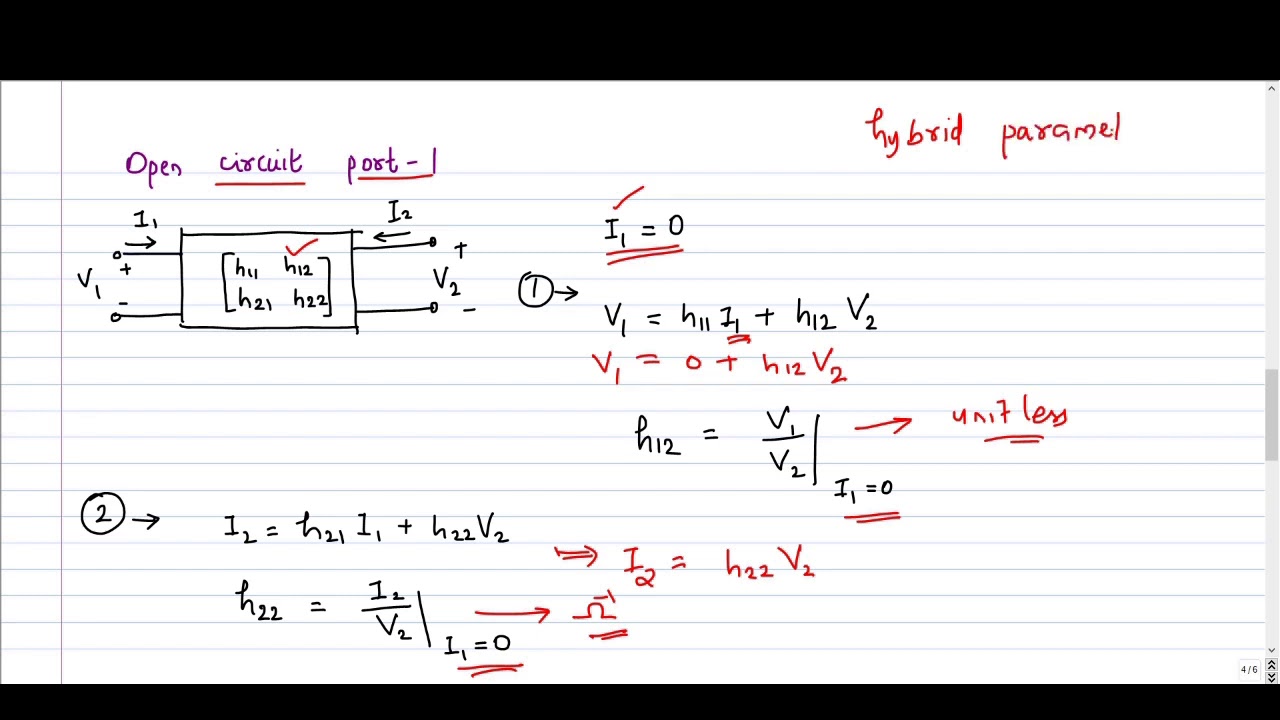 hybrid paramel
Open circuit port-1
I₁ I₂
I₁ = 0
V₁ + - [h₁₁ h₁₂ V₂ + -
h₂₁ h₂₂]
① → V₁ = h₁₁ I₁ + h₁₂ V₂
V₁ = 0 + h₁₂ V₂
h₁₂ = V₁/V₂ | I₁ = 0 → unitless
② → I₂ = h₂₁ I₁ + h₂₂ V₂
⇒ I₂ = h₂₂ V₂
h₂₂ = I₂/V₂ | I₁ = 0 → Ω⁻¹
4 / 6